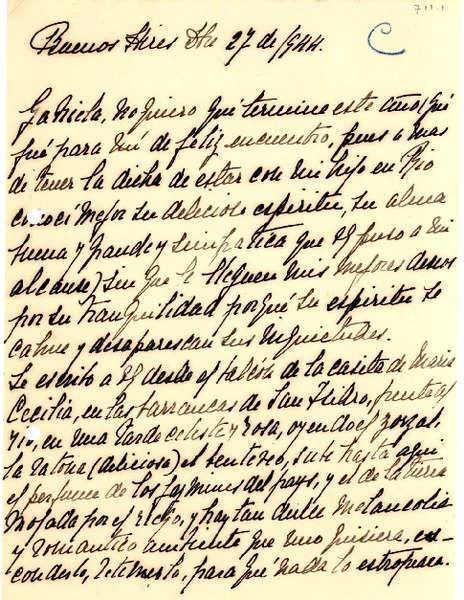 711.1
C
Buenos Aires Dbre 27 de 1944.
Gabriela, no quiero qué termine este año (qué
fué para mí de feliz encuentro, pues a mas
de tener la dicha de estar con mi hijo en Rio
conocí mejor su delicioso espiritu, su alma
buena y grande y simpatica que Vd puso a mi
alcance) sin que le lleguen mis mejores deseos
por su tranquilidad porqué su espiritu se
calme y desaparescan sus inquietudes.
Le escribo a Vd desde el balcón de la casita de Maria
Cecilia, en las barrancas de San Isidro, frente al
rio, en una tarde celeste y rosa, oyendo el zorzal,
la ratona (deliciosa) el benteveo, sube hasta aqui
el perfume de los jazmines del pays, y el de la tierra
mojada por el riego, y hay tan dulce melancolia
y romantico ambiente que uno quisiera, es-
conderlo, retenerlo, para qué nada lo estropeara.